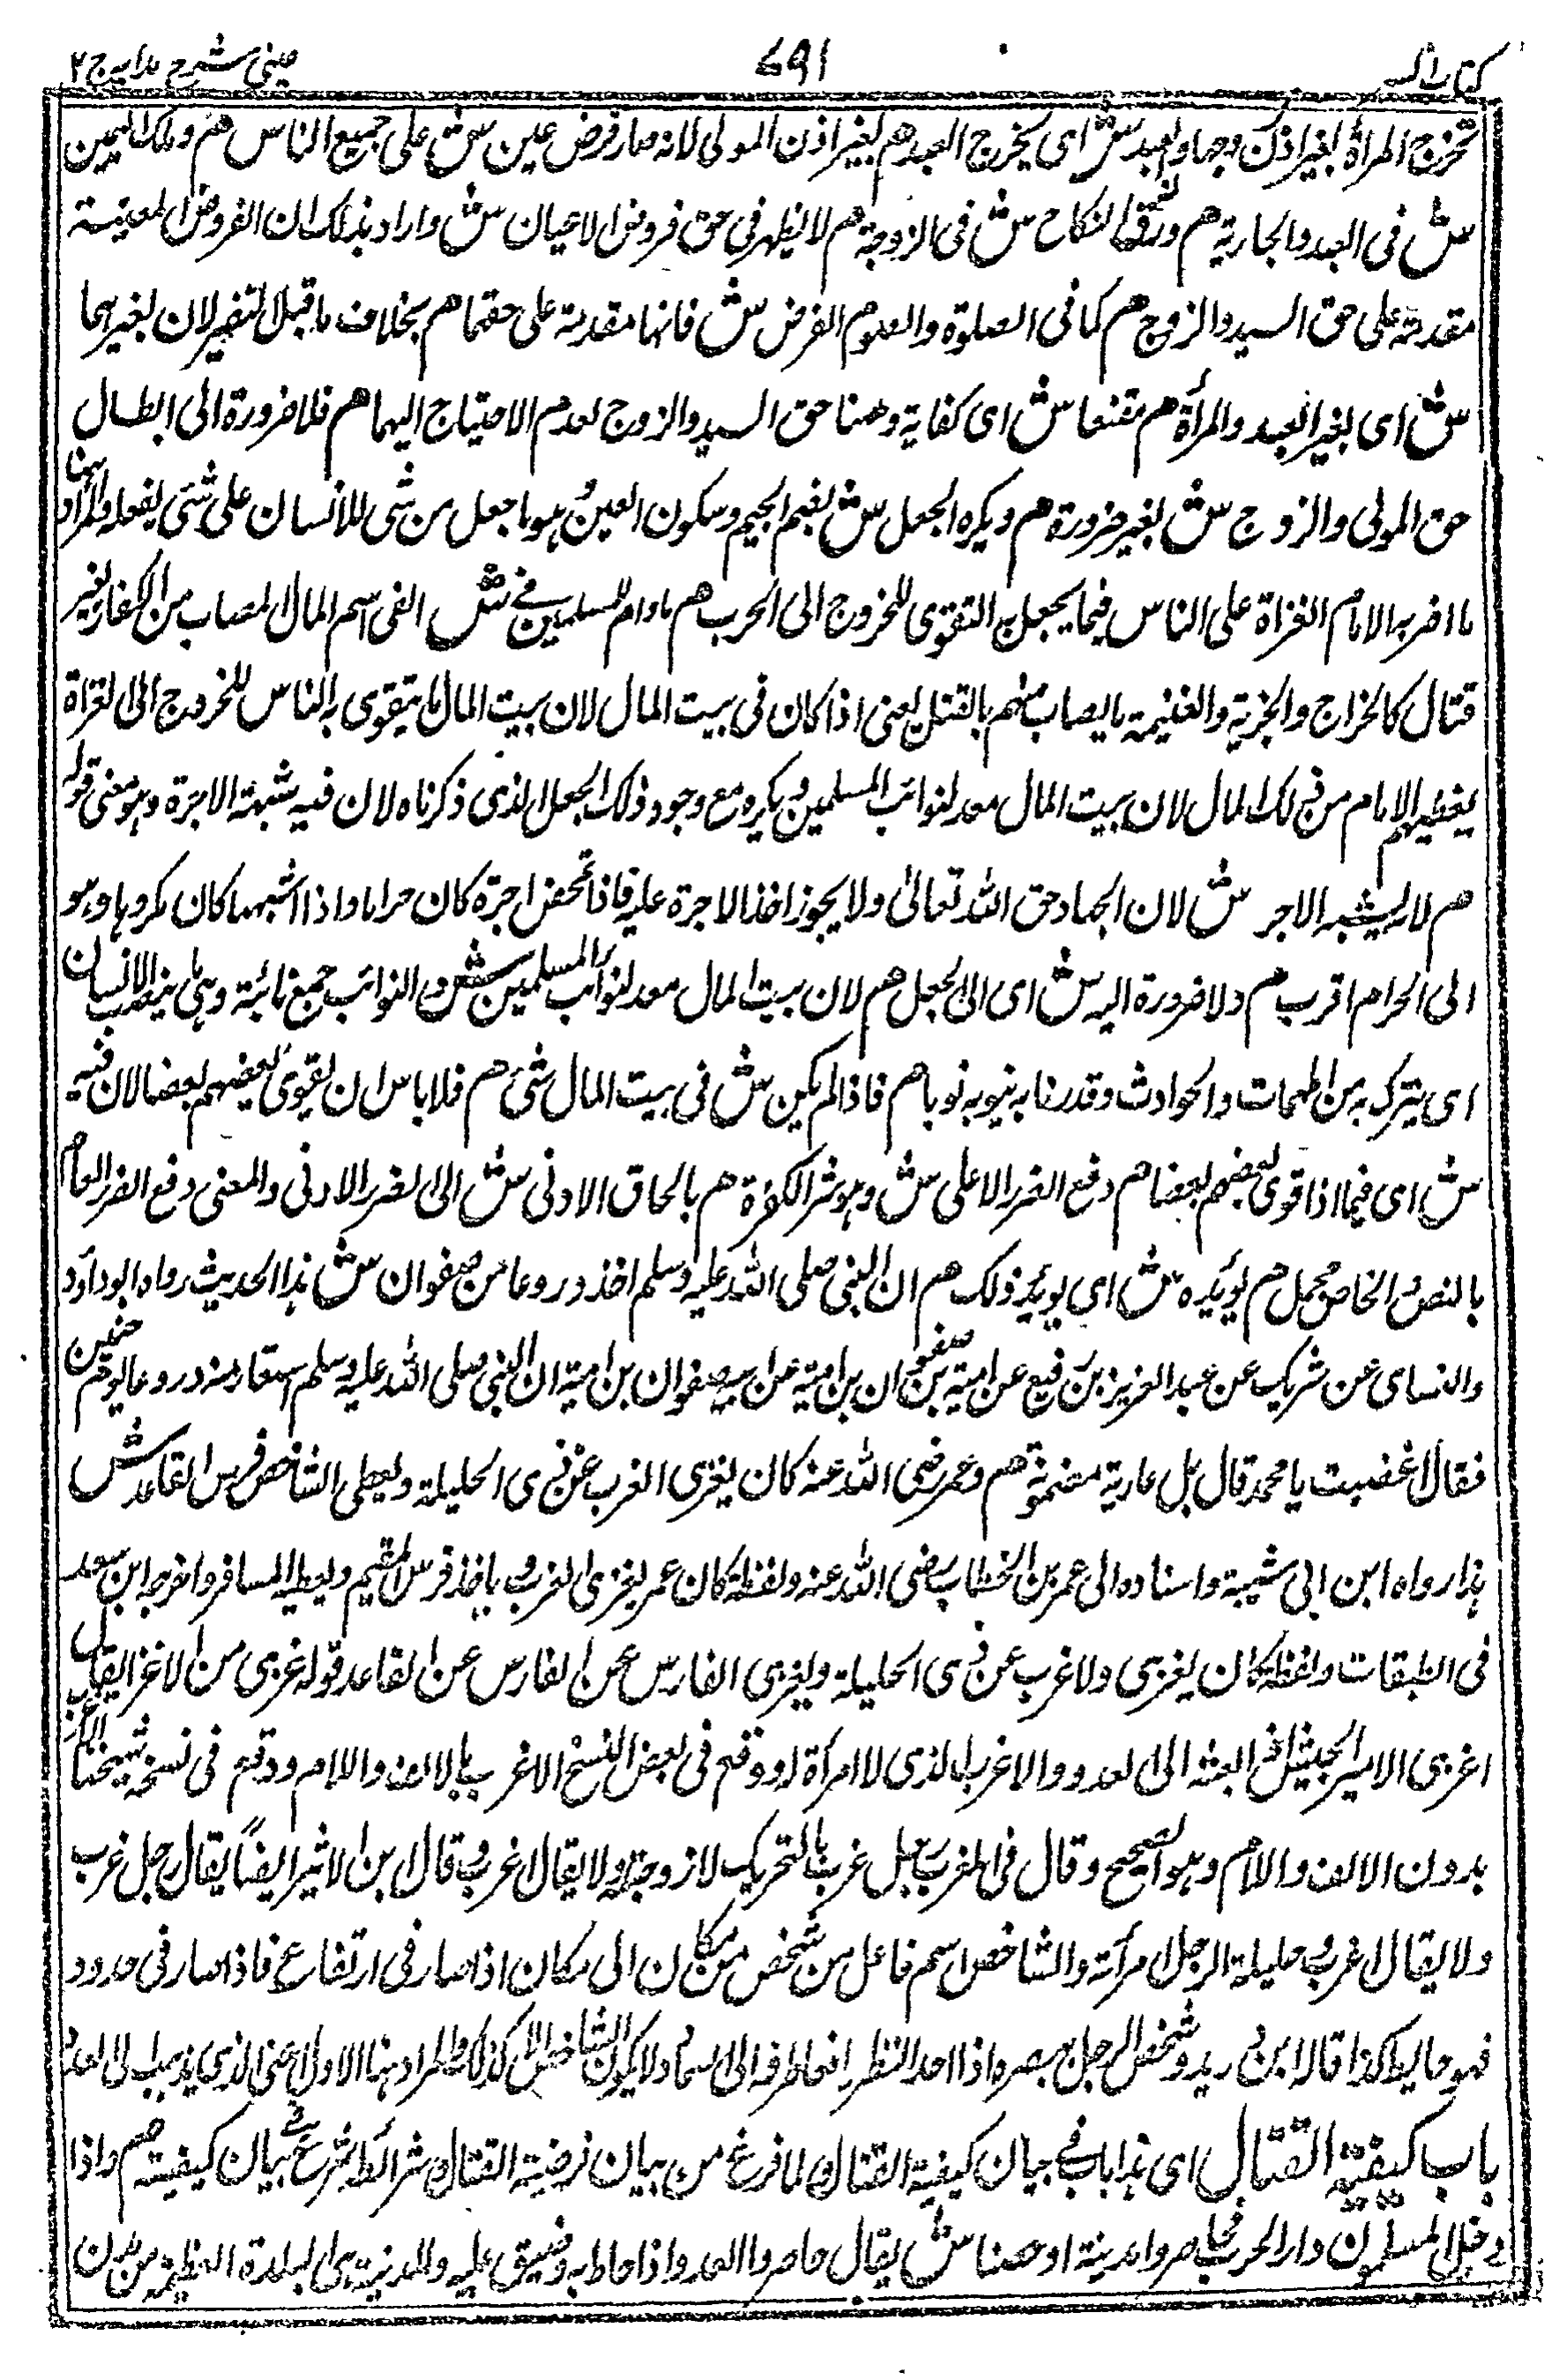 كتاب السير
٦٩١
عيني شرح هدايه ج ٢
تخرج المرأة بغير اذن زوجها والعبد ش اى يخرج العبد هم بغير اذن المولى لانه صار فرض عين ش على جميع الناس هم وملك اليمين
ش فى العبد والجارية هم ورق النكاح ش فى الزوجة هم لا يظهر فى حق فروض الاعيان ش واراد بذلك ان الفروض المعينة
مقدمة على حق السيد والزوج هم كما فى الصلوة والصوم الفرض ش فانها مقدمة على حقهما هم بخلاف ما قبل النفير لان بغيرهما
ش اى بغير العبد والمرأة هم مقنعا ش اى كفاية وهنا حق السيد والزوج لعدم الاحتياج اليهما هم فلا ضرورة الى ابطال
حق المولى والزوج ش بغير ضرورة هم ويكره الجعل ش بضم الجيم وسكون العين وهو ما جعل من شى للانسان على شئى يفعله والمراد ههنا
ما اضر به الامام الغزاة على الناس فيما يجعل به التقوى للخروج الى الحرب هم ما دام للمسلمين فئ ش الفى اسم المال المصاب من الكفار بغير
قتال كالخراج والجزية والغنيمة ما يصاب منهم بالقتل يعنى اذا كان فى بيت المال لان بيت المال ما يتقوى به الناس للخروج الى الغزاة
يعطيهم الامام من ذلك المال لان بيت المال معد لنوائب المسلمين ويكره مع وجود ذلك الجعل الذى ذكرناه لان فيه شبهة الاجرة وهو معنى قوله
هم لانه يشبه الاجر ش لان الجهاد حق الله تعالى ولا يجوز اخذ الاجرة عليه فاذا تمحض اجرة كان حراما واذا اشبهها كان مكروها وهو
الى الحرام اقرب هم ولا ضرورة اليه ش اى الى الجعل هم لان بيت المال معد لنوائب المسلمين ش والنوائب جمع نائبة وهى ما ينوب الانسان
اى يتركه به من المهمات والحوادث وقدرنا به ينوبه نوبا هم فاذا لم يكن ش فى بيت المال شئ هم فلا باس ان يقوى بعضهم بعضا لان فيه
ش اى فيما اذا قوى بعضهم بعضا هم دفع الضرر الاعلى ش وهو شر الكفرة هم بالحاق الادنى ش اى الضرر الادنى والمعنى دفع الضرر العام
بالنص الخاص محمل هم يؤيده ش اى يؤيد ذلك هم ان النبى صلى الله عليه وسلم اخذ دروعا من صفوان ش هذا الحديث رواه ابو داود
والنساى عن شريك عن عبد العزيز بن رفيع عن امية بن صفوان بن امية عن ابيه صفوان بن امية ان النبى صلى الله عليه وسلم استعار منه دروعا يوم حنين
فقال اغصبت يا محمد قال بل عارية مضمونة هم وعمر رضى الله عنه كان يغزى الغرب عن ذى الحليلة ويعطى الشاخص فرس القاعد ش
هذا رواه ابن ابى شيبة واسناده الى عمر بن الخطاب رضى الله عنه ولفظه كان عمر يغزى الغرب وياخذ فرس المقيم ويعطيه المسافر واخرجه ابن سعد
فى الطبقات ولفظه كان يغزى ولا غرب عن ذى الحليلة ويغزى الفارس عن الفارس عن القاعد قوله غزى من الاغزا يقال
اغزى الامير الجيش اذا بعثه الى العدو والاغرب الذى لا امرأة له ووقع فى بعض النسخ الاغرب بالالف واللام ووقع فى نسخة شيخنا العلاء
بدون الالف واللام وهو الصحيح وقال فى المغرب رجل غرب بالتحريك لا زوجة له ولا يقال اغرب وقال ابن الاثير ايضاً يقال رجل غرب
ولا يقال اغرب وحليلة الرجل امرأته والشاخص اسم فاعل من شخص من مكان الى مكان اذا صار فى ارتفاع فاذا صار فى حدود
فهو حابط كذا قاله ابن دريد وشخص الرجل ببصره اذا احد النظر رافعا طرفه الى السماء ولا يكون الشاخص الا كذلك والمراد ههنا الاول اعنى الذى يذهب الى العدو
باب كيفية القتال اى هذا باب فى بيان كيفية القتال ولما فرغ من بيان فرضية القتال وشرائطه شرع فى بيان كيفيته هم واذا
دخل المسلمون دار الحرب فحاصروا مدينة او حصنا ش يقال حاصروا العدو اذا حاط به وضيق عليه والمدينة هى البلدة العظيمة من مدن